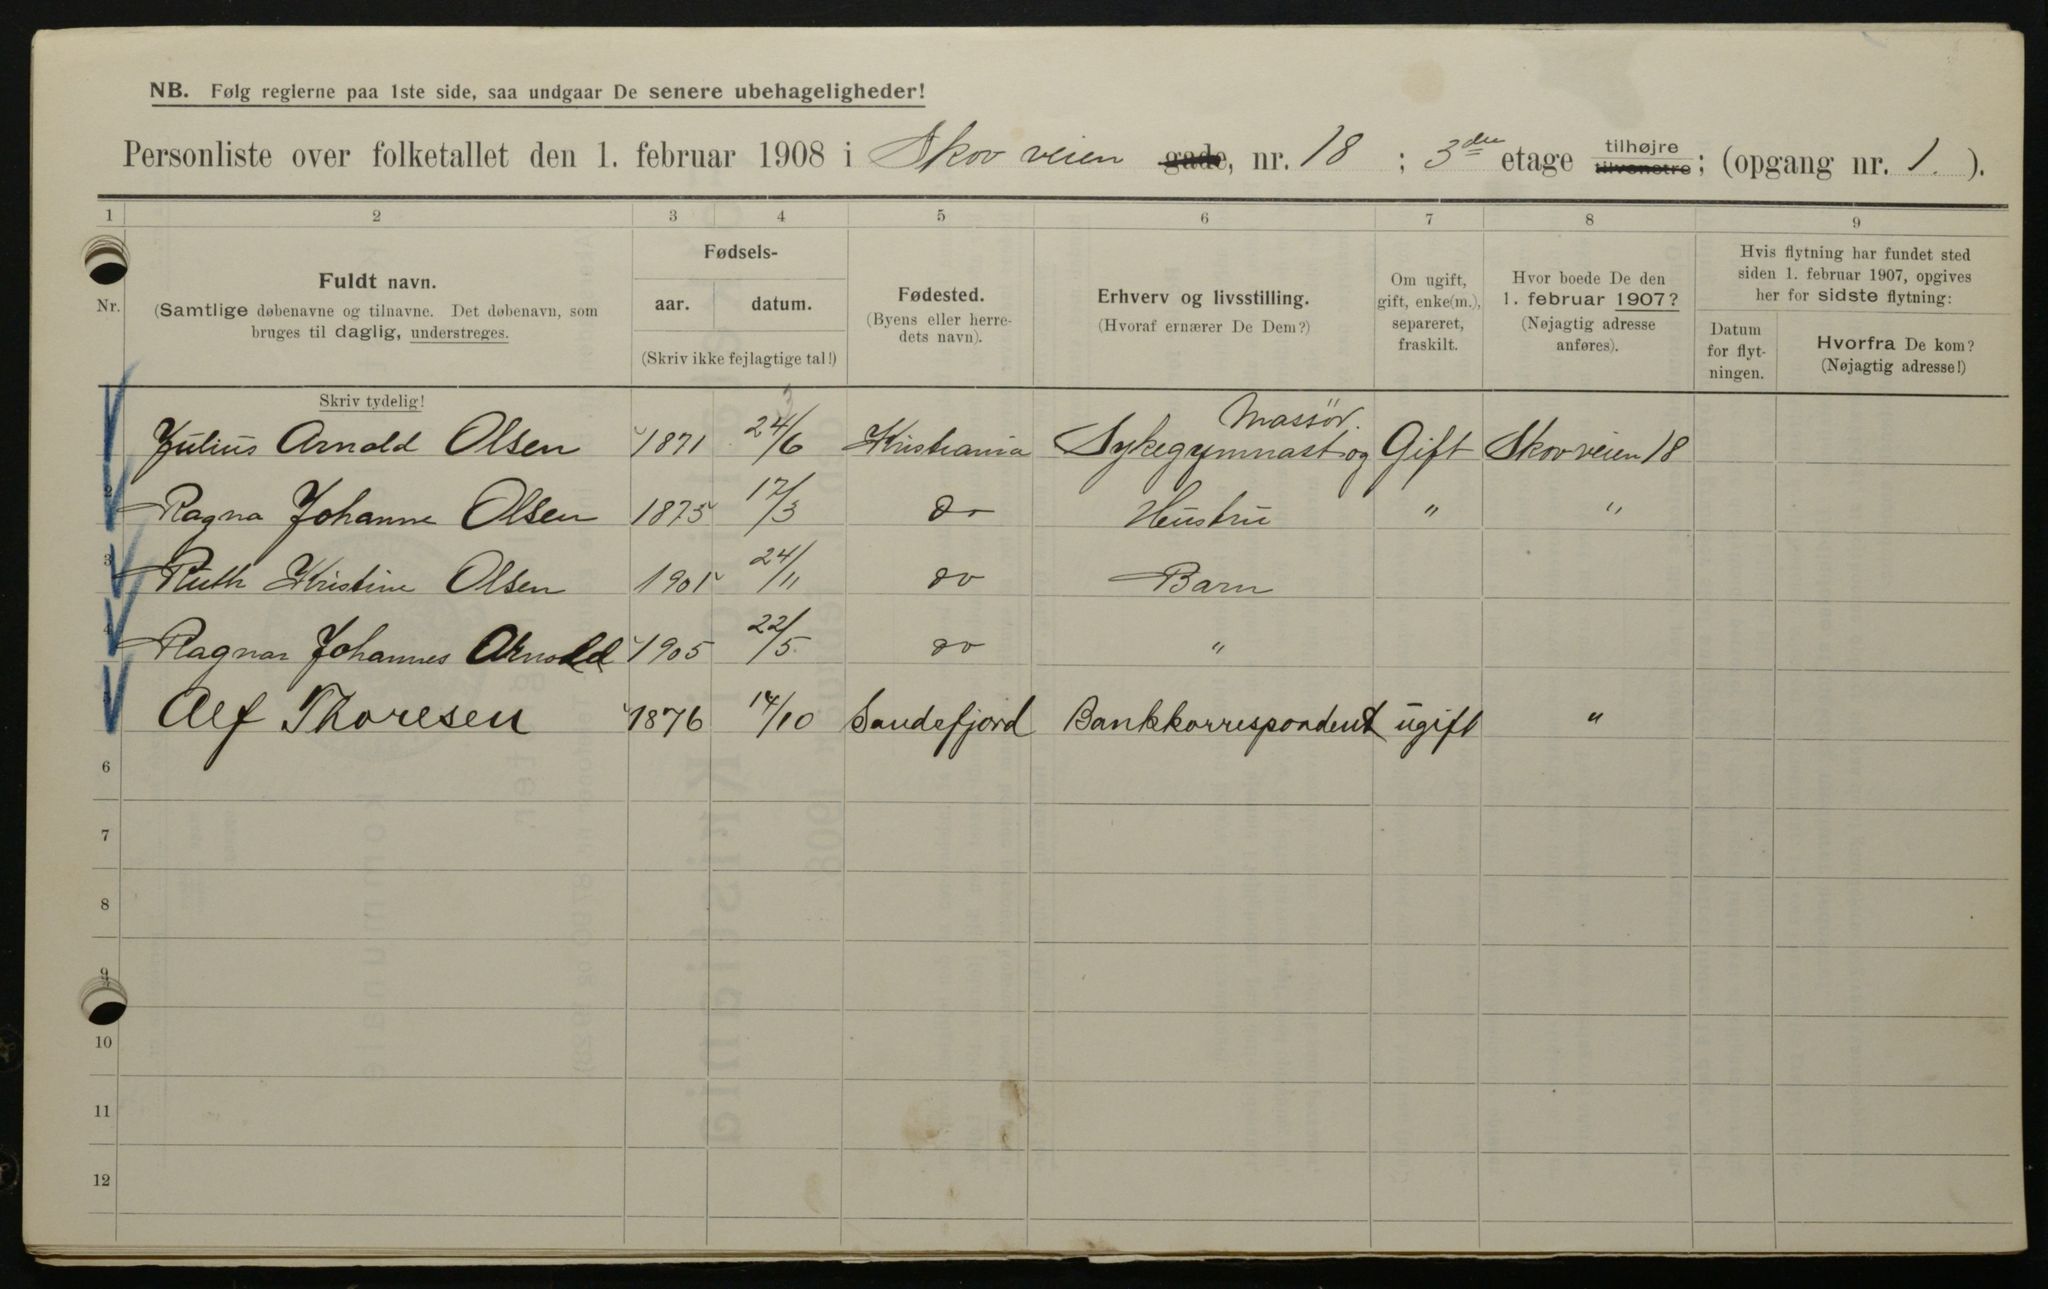 NB. Følg reglerne paa 1ste side, saa undgaar De senere ubehageligheder!
Personliste over folketallet den 1. februar 1908 i Skovveien gade, nr. 18 ; 3die etage tilhøjre tilvenstre ; (opgang nr. 1. ).
1 2 3 4 5 6 7 8 9
Nr.
Fuldt navn.
(Samtlige døbenavne og tilnavne. Det døbenavn, som
bruges til daglig, understreges.
Skriv tydelig!
Fødsels-
aar. datum.
(Skriv ikke fejlagtige tal!)
Fødested.
(Byens eller herre-
dets navn).
Erhverv og livsstilling.
(Hvoraf ernærer De Dem?)
Om ugift,
gift, enke(m.),
separeret,
fraskilt.
Hvor boede De den
1. februar 1907?
(Nøjagtig adresse
anføres).
Hvis flytning har fundet sted
siden 1. februar 1907, opgives
her for sidste flytning:
Datum
for flyt-
ningen.
Hvorfra De kom?
(Nøjagtig adresse!)
Massör.
Julius Arnold Olsen 1871 24/6 Kristiania Sykegymnast og Gift Skovveien 18
2 Ragna Johanne Olsen 1875 17/3 do Hustru " "
3 Ruth Kristine Olsen 1901 24/11 do Barn
4 Ragnar Johannes Arnold 1905 22/5 do "
Alf Thoresen 1876 14/10 Sandefjord Bankkorrespondent ugift "
6
7
8
9
10
11
12